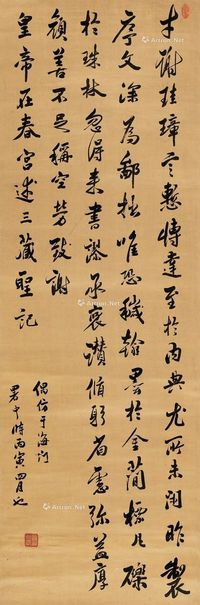 才謝珪璋言慙博達至於內典尤所未閑昨製
序文深為鄙拙唯恐穢翰墨於金簡標瓦礫
於珠林忽得來書謬承褒讚循躬省慮彌益厚
顏善不足稱空勞致謝
皇帝在春宮述三藏聖記
偶仿于海門
署中時丙寅四月也